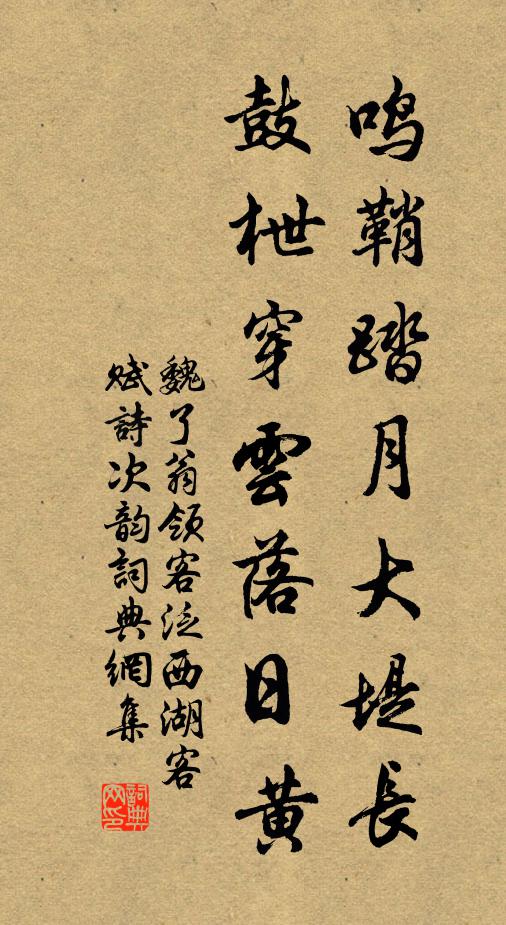 鸣鞘踏月大堤长
鼓枻穿雲落日黄
魏了翁领客泛西湖客
赋詩次韵詞典網集
詞典网印